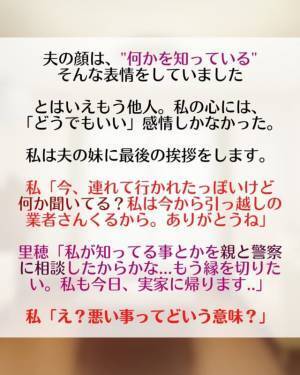 夫の顔は、"何かを知っている"
そんな表情をしていました
とはいえもう他人。私の心には、
「どうでもいい」感情しかなかった。
私は夫の妹に最後の挨拶をします。
私「今、連れて行かれたっぽいけど
何か聞いてる？私は今から引っ越しの
業者さんくるから。ありがとうね」
里穂「私が知ってる事とかを親と警察
に相談したからかな...もう縁を切りた
い。私も今日、実家に帰ります..」
私「え？悪い事ってどいう意味？」